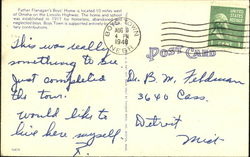 Father Flanagan's Boys' Home is located 10 miles west
of Omaha on the Lincoln Highway. The home and school
was established in 1917 for homeless, abandoned
neglected boys. Boys Town is supported entirely by
contributions.
BOYS TOWN
AUG 9
4 PM
1946
NEBR.
POST CARD
This was really
something to see.
Just completed
the tour.
Would like to
live here myself.
Dr. B. M. Feldman
3640 Cass.
Detroit
Mich